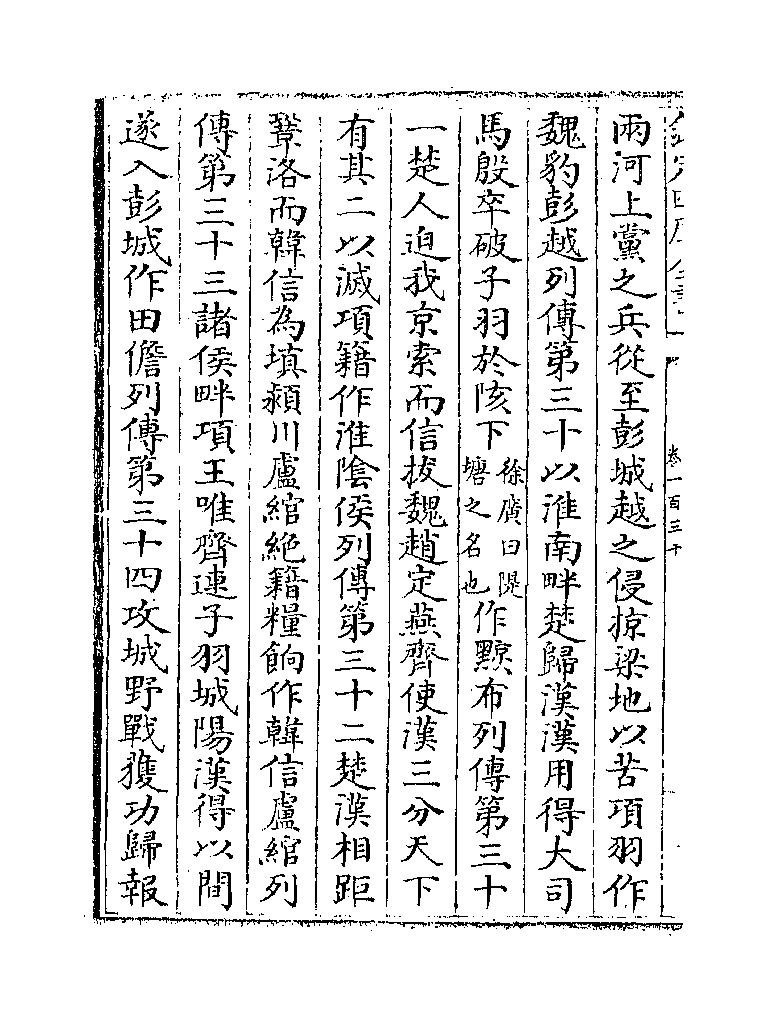 卷一百三十
兩河上黨之兵從至彭城越之侵掠梁地以苦項羽作
魏豹彭越列傳第三十以淮南畔楚歸漢漢用得大司
馬殷卒破子羽於陔下徐廣曰隄塘之名也作黥布列傳第三十
一楚人迫我京索而信拔魏趙定燕齊使漢三分天下
有其二以滅項籍作淮陰侯列傳第三十二楚漢相距
鞏洛而韓信為填潁川盧綰絶籍糧餉作韓信盧綰列
傳第三十三諸侯畔項王唯齊連子羽城陽漢得以間
遂入彭城作田儋列傳第三十四攻城野戰獲功歸報